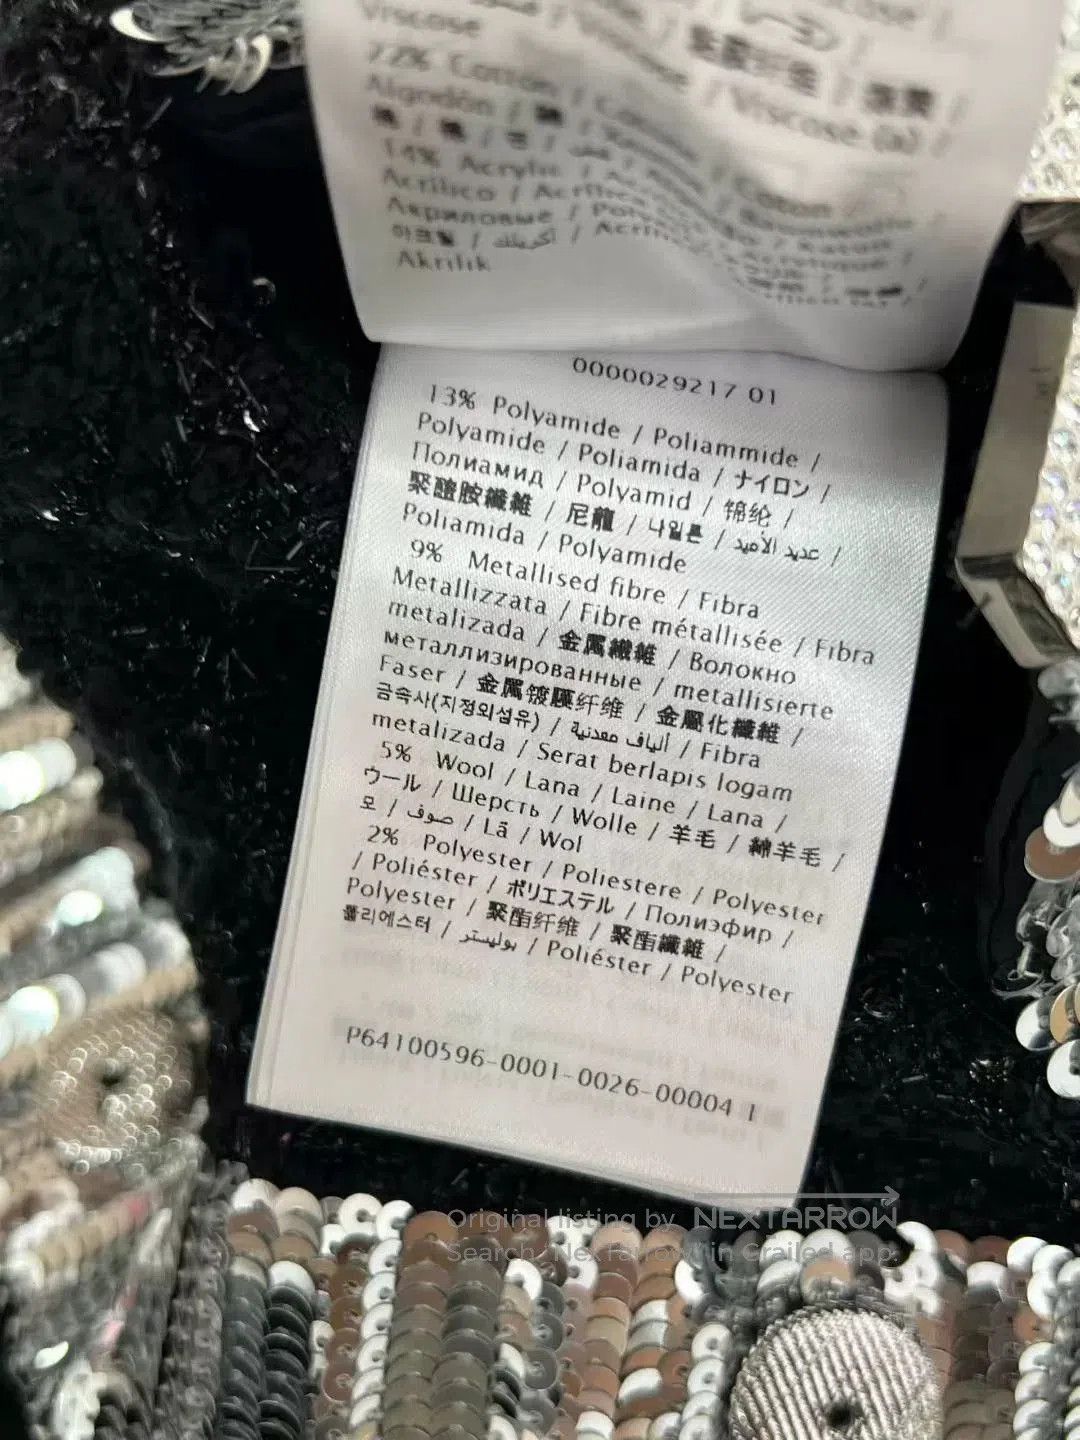 Viscose
Viscose / Viscose (a) /
22% Cotton /
Algodón / 綿 /
14% Acrylic /
Acrílico /
Акриловые /
아크릴 / أكريليك /
Akrilik
0000029217 01
13% Polyamide / Poliammide /
Polyamide / Poliamida / ナイロン /
Полиамид / Polyamid / 锦纶 /
聚醯胺纖維 / 尼龍 / 나일론 / عديد الأميد /
Poliamida / Polyamide
9% Metallised fibre / Fibra
Metallizzata / Fibre métallisée / Fibra
metalizada / 金属繊維 / Волокно
металлизированные / metallisierte
Faser / 金属镀膜纤维 / 金屬化纖維 /
금속사(지정외섬유) / ألياف معدنية / Fibra
metalizada / Serat berlapis logam
5% Wool / Lana / Laine / Lana /
ウール / Шерсть / Wolle / 羊毛 / 綿羊毛 /
모 / صوف / Lã / Wol
2% Polyester / Poliestere / Polyester
/ Poliéster / ポリエステル / Полиэфир /
Polyester / 聚酯纤维 / 聚酯纖維 /
폴리에스터 / بوليستر / Poliéster / Polyester
P64100596-0001-0026-00004 1
Original listing by NEXTARROW
Search "Nextarrow" in Grailed app